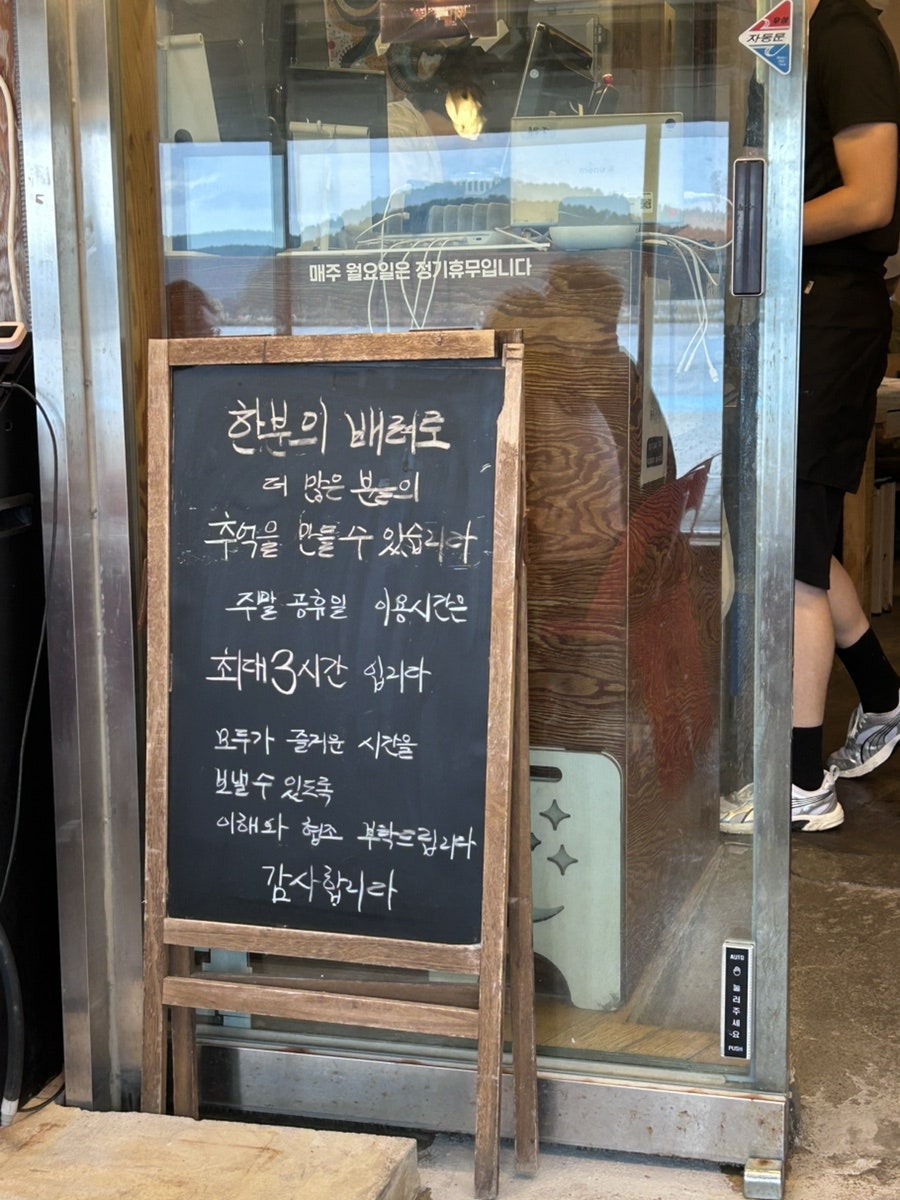 자동문
매주 월요일은 정기휴무입니다
한분의 배려로
더 많은 분들의
추억을 만들 수 있습니다
주말 공휴일 이용시간은
최대 3시간 입니다
모두가 즐거운 시간을
보낼 수 있도록
이해와 협조 부탁드립니다
감사합니다
AUTO
눌러주세요
PUSH